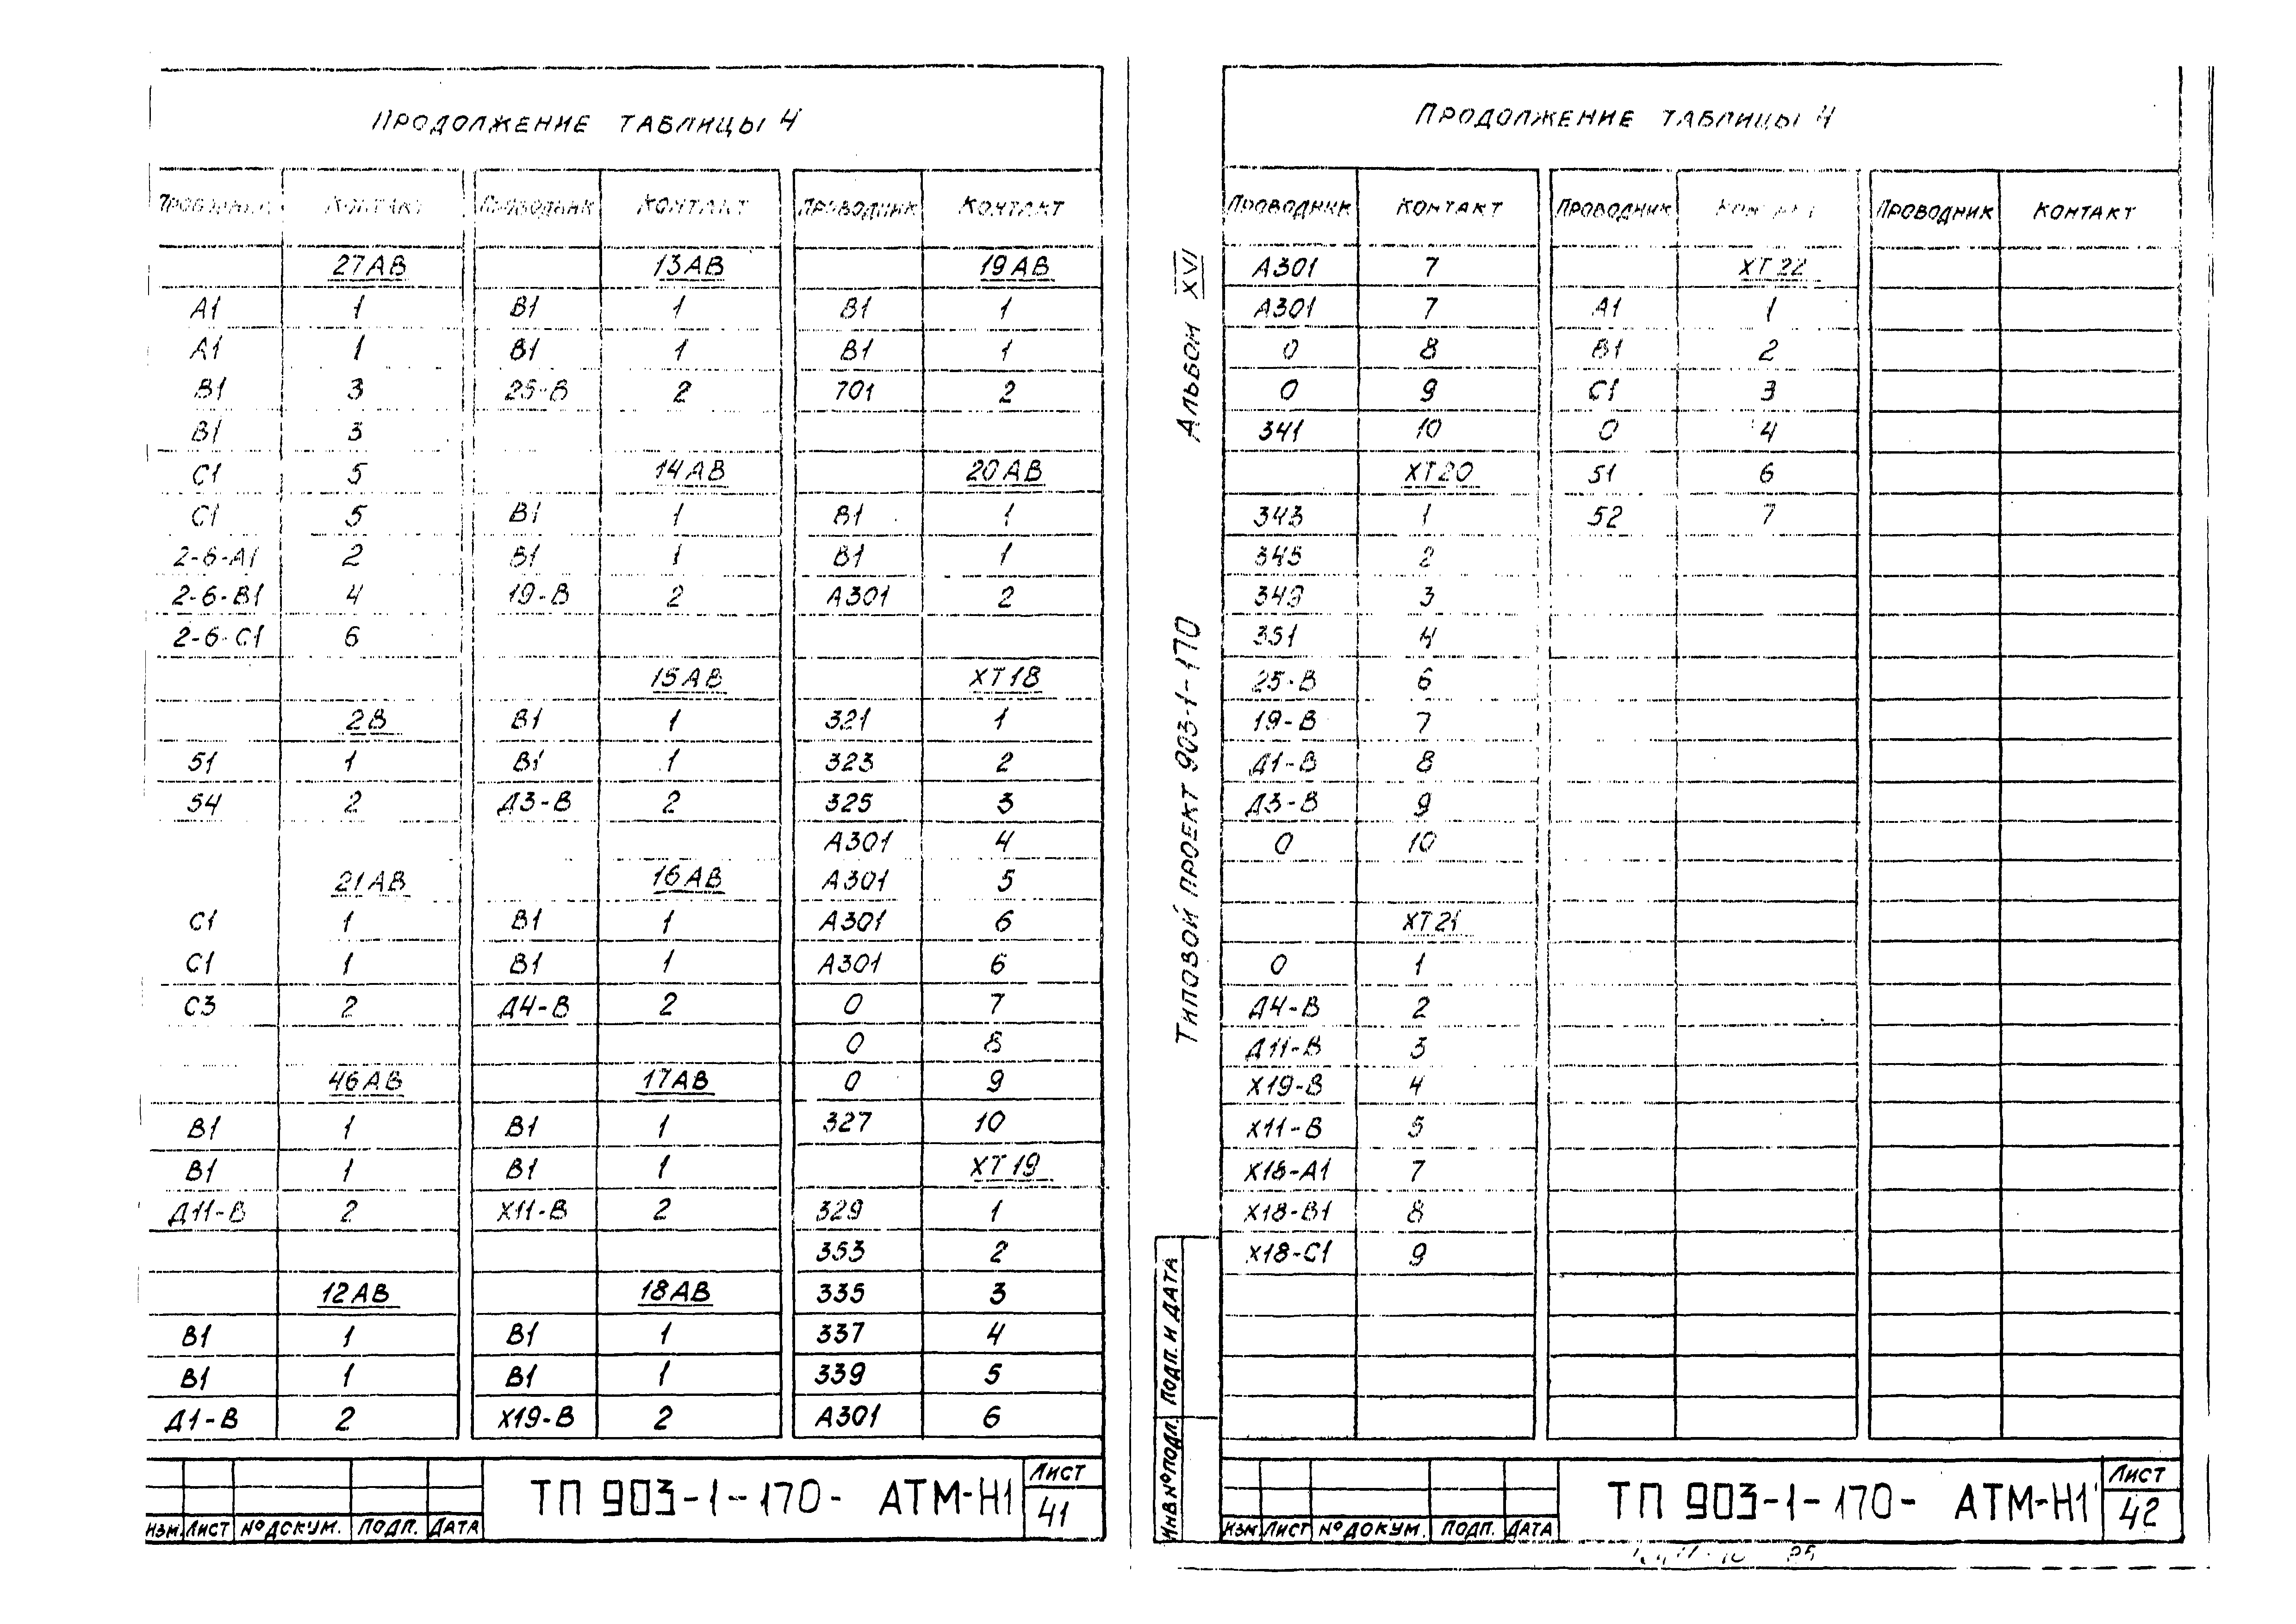 Продолжение таблицы 4
Проводник Контакт Проводник Контакт Проводник Контакт
27АВ 13АВ 19АВ
А1 1 В1 1 В1 1
А1 1 В1 1 В1 1
В1 3 25-В 2 701 2
В1 3
С1 5 14АВ 20АВ
С1 5 В1 1 В1 1
2-6-А1 2 В1 1 В1 1
2-6-В1 4 19-В 2 А301 2
2-6-С1 6
15АВ ХТ18
2В В1 1 321 1
51 1 В1 1 323 2
54 2 Д3-В 2 325 3
А301 4
21АВ 16АВ А301 5
С1 1 В1 1 А301 6
С1 1 В1 1 А301 6
С3 2 Д4-В 2 0 7
0 8
46АВ 17АВ 0 9
В1 1 В1 1 327 10
В1 1 В1 1 ХТ19
Д11-В 2 Х11-В 2 329 1
353 2
12АВ 18АВ 335 3
В1 1 В1 1 337 4
В1 1 В1 1 339 5
Д1-В 2 Х19-В 2 А301 6
ТП 903-1-170- АТМ-Н1
Лист
41
Изм. Лист №докум. Подп. Дата
Альбом XVI
Типовой проект 903-1-170
Подп. и дата
Инв№подл.
Продолжение таблицы 4
Проводник Контакт Проводник Контакт Проводник Контакт
А301 7 ХТ22
А301 7 А1 1
0 8 В1 2
0 9 С1 3
341 10 0 4
ХТ20 51 6
343 1 52 7
345 2
349 3
351 4
25-В 6
19-В 7
Д1-В 8
Д3-В 9
0 10
ХТ21
0 1
Д4-В 2
Д11-В 3
Х19-В 4
Х11-В 5
Х18-А1 7
Х18-В1 8
Х18-С1 9
ТП 903-1-170- АТМ-Н1
Лист
42
Изм Лист №докум. Подп. Дата